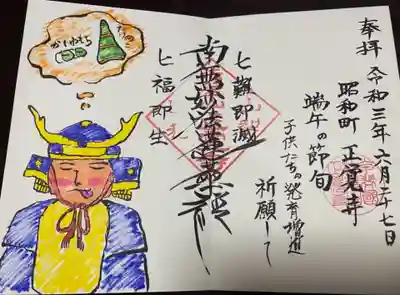 奉拝 令和三年六月二七日
昭和町 正覚寺
端午の節旬
子供たちの発育増進
祈願して
七難即滅
南無妙法蓮華経
七福即生
ちまき
かしわもち